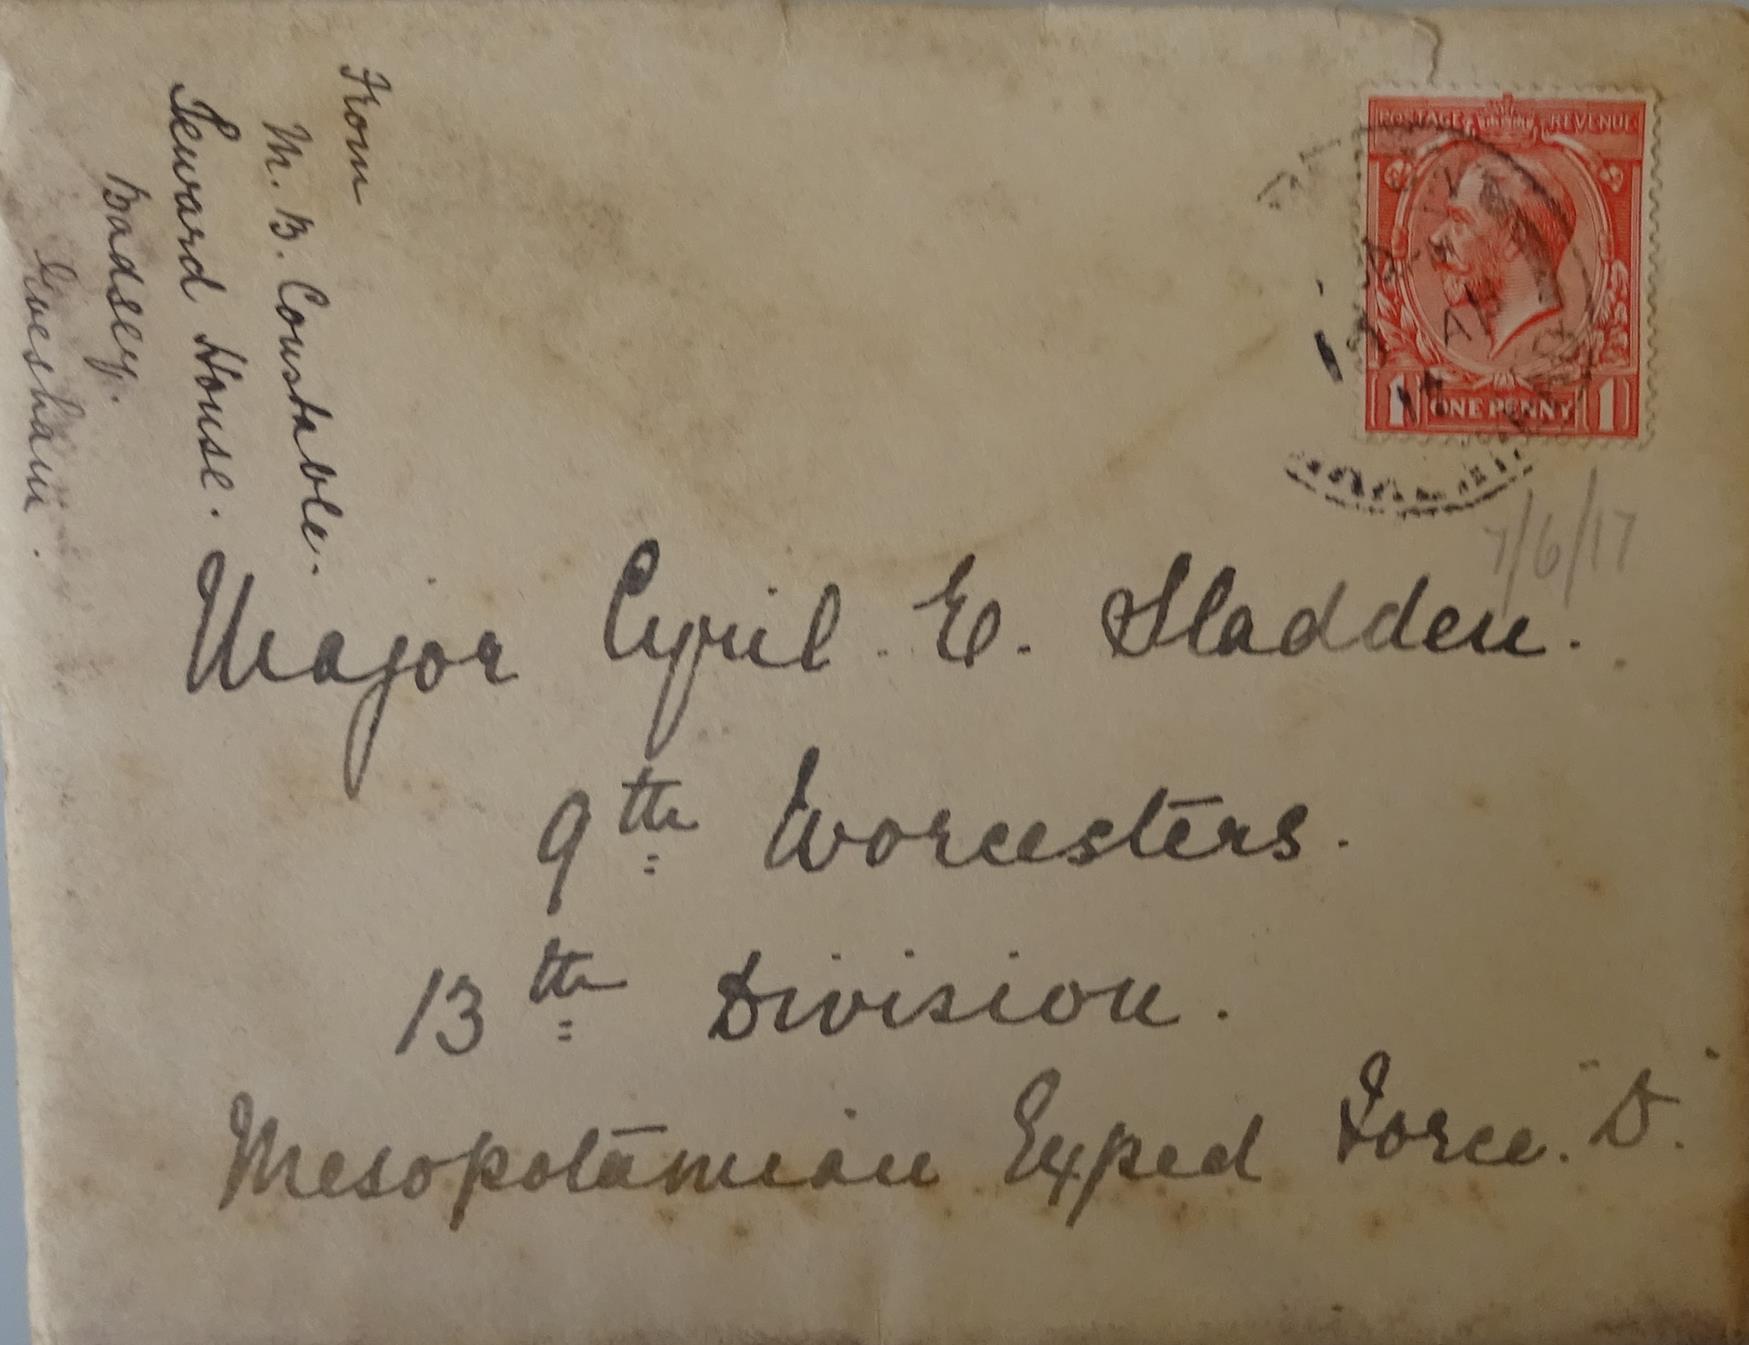 From
M. B. Constable.
Seward House.
Badsey.
Evesham.
POSTAGE REVENUE
1 ONE PENNY 1
7/6/17
Major Cyril. E. Sladden.
9th Worcesters.
13th Division.
Mesopotamian Exped Force. "D".